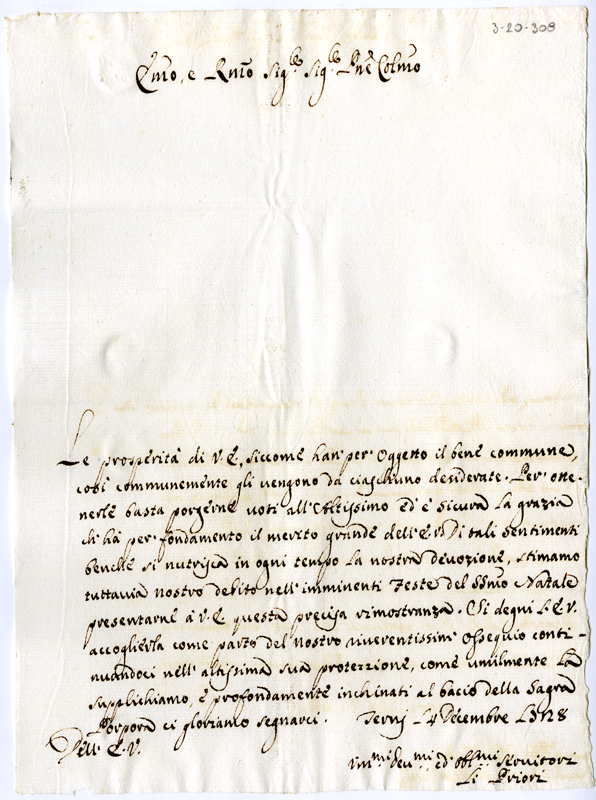 3-20-308
Emo, e Rmo Sigre Sigre Pne Colmo
Le prosperità di V. E, siccome han' per Oggetto il bene commune,
così communemente gli vengono da ciaschuno desiderate. Per otte-
nerle basta porgerne voti all'Altissimo ed' è sicura la grazia
ch' hà per fondamento il merito grande dell'E. V. Di tali sentimenti
benche si nutrisca in ogni tempo la nostra devozione, stimamo
tuttavia nostro debito nell' imminenti Feste del SSmo Natale
presentarne à V. E. questa precisa rimostranza. Si degni L'E. V.
accoglierla come parto del nostro riverentissim' Ossequio conti-
nuandoci nell' altissima sua protezzione, come umilmente La
supplichiamo, e profondamente inchinati al bacio della Sagra
Porpora ci gloriamo segnarci. Terni L4 Decembre 1728
Dell' E. V.
Umi Devmi ed' Oblmi Servitori
Li Priori